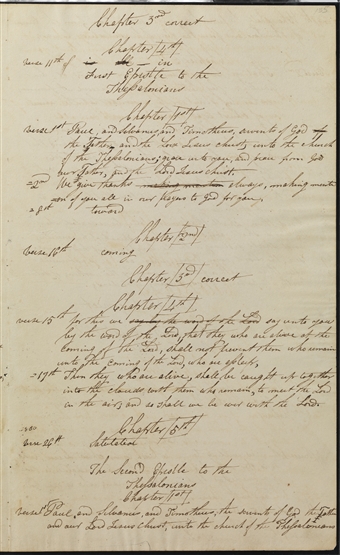 Chapter 3rd correct
Chapter [4th]
verse 11th of in
First Epistle to the
Thessalonians
Chapter [1st]
verse 1st Paul, and Silvanus, and Timotheus, servants of God
the Father, and the Lord Jesus Christ, unto the church
of the Thessalonians; grace unto you, and peace from God
our father, and the Lord Jesus Christ.
=2nd We give thanks making men tion always, making menti
on of you all in our prayers to God for you,
=8th toward
Chapter [2nd]
Verse 16th coming
Chapter [3rd] correct
Chapter [4th]
verse 15th for this we say unto you
by the word of the Lord, that they who are alive at the
coming of the Lord, shall not prevent them who remain
unto the coming of the Lord, who are asleep,
=17th Then they who are alive, shall be caught up together
into the clouds with them who remain, to meet the Lord
in the air; and so shall we be ever with the Lord.
Chapter [5th]
verse 26th Salutation
The Second Epistle to the
Thessalonians
Chapter [1st]
verse 1st Paul, and Silvanus, and Timotheus, the servants of God the Father
and our Lord Jesus Christ, unto the church of the Thessalonians